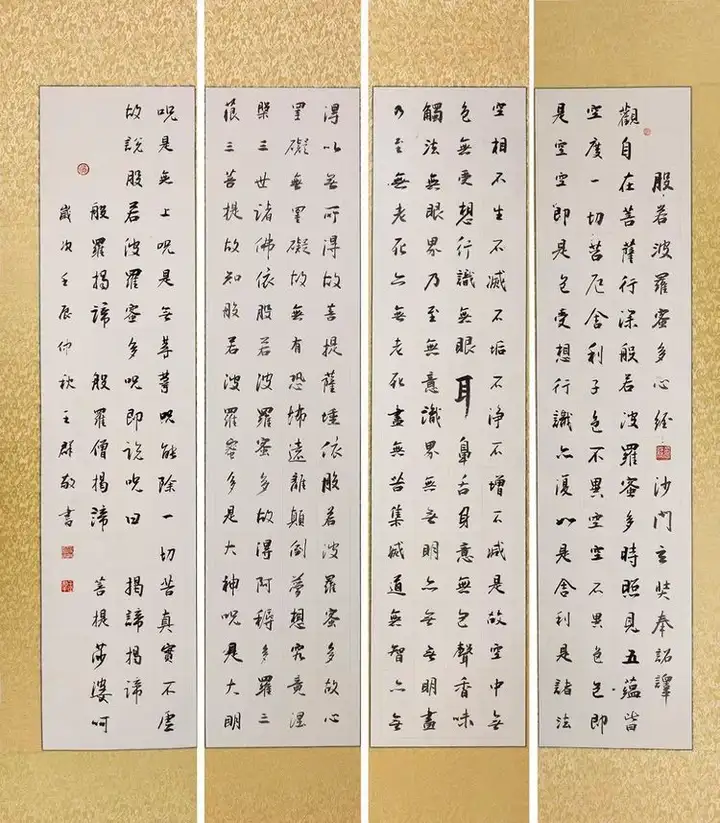 般若波羅蜜多心經 沙門玄奘奉詔譯
觀自在菩薩行深般若波羅蜜多時照見五蘊皆
空度一切苦厄舍利子色不異空空不異色色即
是空空即是色受想行識亦復如是舍利是諸法
空相不生不滅不垢不淨不增不減是故空中無
色無受想行識無眼耳鼻舌身意無色聲香味
觸法無眼界乃至無意識界無無明亦無無明盡
乃至無老死亦無老死盡無苦集滅道無智亦無
得以無所得故菩提薩埵依般若波羅蜜多故心
罣礙無罣礙故無有恐怖遠離顛倒夢想究竟涅
槃三世諸佛依般若波羅蜜多故得阿耨多羅三
藐三菩提故知般若波羅蜜多是大神呪是大明
呪是無上呪是無等等呪能除一切苦真實不虛
故說般若波羅蜜多呪即說呪曰 揭諦揭諦
般羅揭諦 般羅僧揭諦 菩提莎婆呵
歲次壬辰仲秋王群敬書